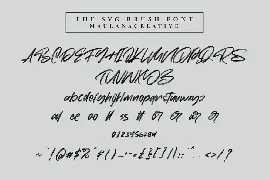 THE SVG BRUSH FONT
MAULANACREATIVE
ABCDEFGHIJKLMNOPQRS
TUVWXYZ
abcdefghijklmnopqrstuvwxyz
0123456789